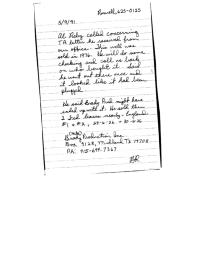 Roswell, 625-0155
5/9/91.
Al Perry called concerning
TA letter he received from
our office. This well was
sold in 1976. He will do some
checking and call us back
on who bought it. Said
he went out there once and
it looked like it had been
plugged.
He said Brady Prod might have
ended up with it. He sold them
2 fed leases nearby -
#1 + #2,
Brady Production Inc.
Box 5128, Midland, Tx 79708
PA: 915-699-7367